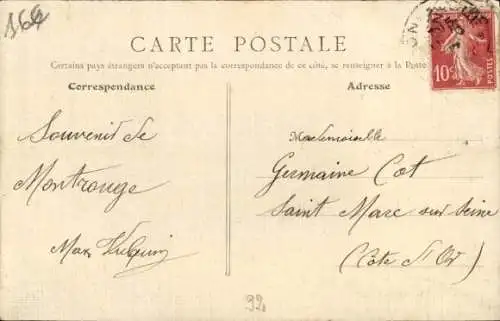 164
CARTE POSTALE
Certains pays étrangers n'acceptant pas la correspondance de ce côté, se renseigner à la Poste
Correspondance
Adresse
10c
POSTES
Souvenir de
Montrouge
Max
Mademoiselle
Germaine Cot
Saint Marc sur Seine
(Côte d'Or)
92